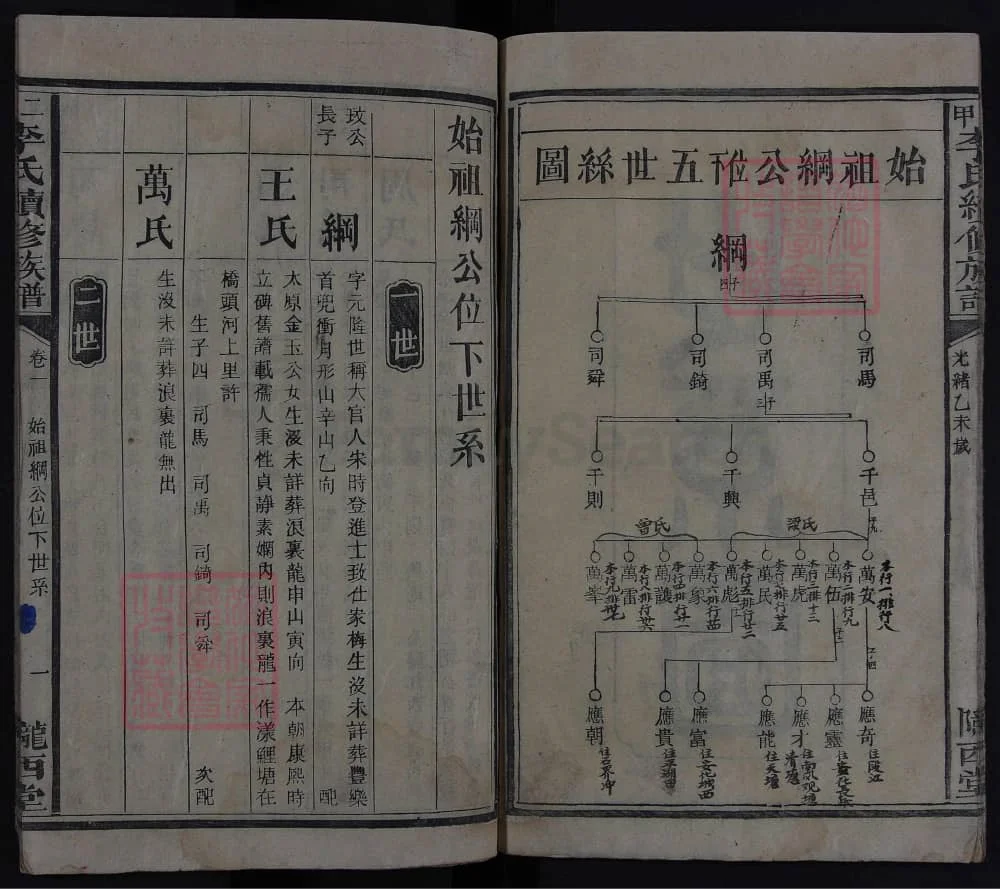 甲
李氏續修族譜
光緒乙未歲
隴西堂
始祖綱公祔五世絲圖
綱
子四
司馬
司禹
司錡
司舜
子三
千邑
千興
千則
子九
梁氏
曾氏
萬安
本行一排行八
萬伍
本行二排行九
萬虎
本行三排十三
萬民
萬彪
萬象
本行六排行廿四
萬護
萬雷
萬峯
子四
子二
應奇
應靈
應才
應能
住天壇
應富
住安化城西
應貴
應朝
始祖綱公位下世系
一世
玫公長子
綱
字元隆世稱大官人宋時登進士致仕家梅生沒未詳葬豐樂
首兜衝月形山辛山乙向
配
王氏
太原金玉公女生沒未詳葬浪裏龍申山寅向 本朝康熙時
立碑舊譜載孺人秉性貞靜素嫻內則浪裏龍一作漾鯉塘在
橋頭河上里許
生子四 司馬 司禹 司錡 司舜
次配
萬氏
生沒未詳葬浪裏龍無出
二世
二李氏續修族譜
卷一
始祖綱公位下世系
一
隴西堂